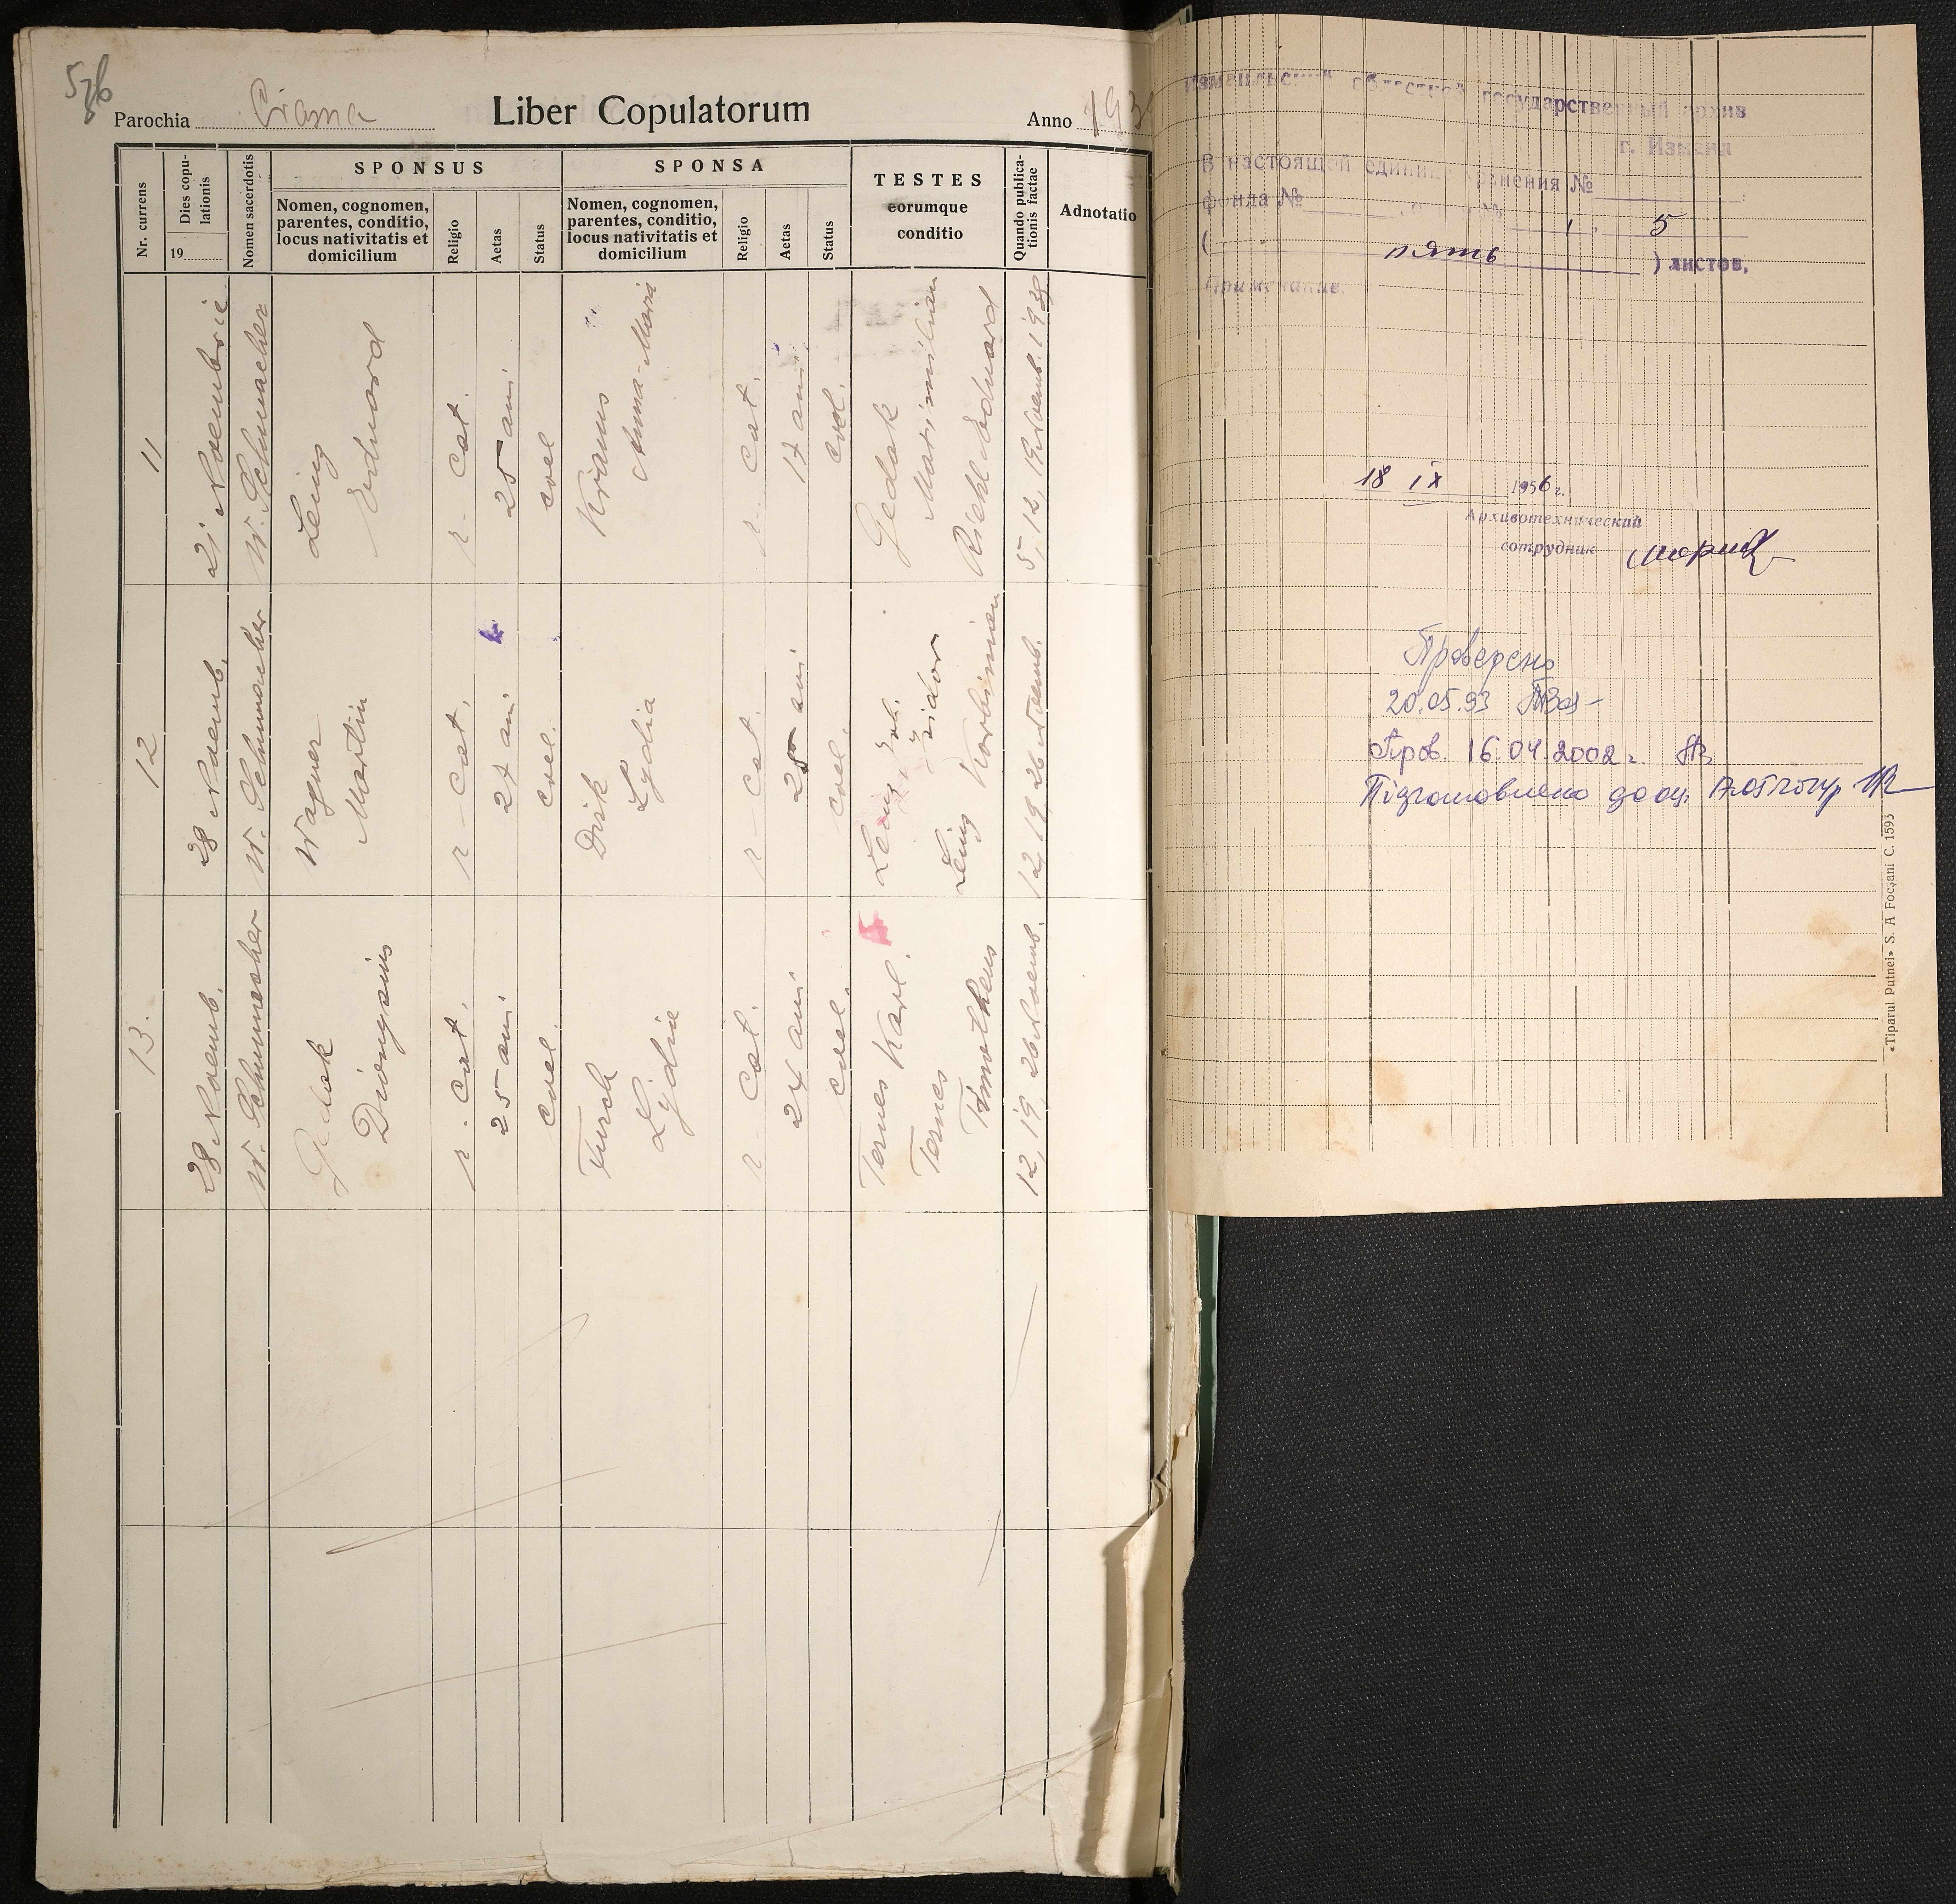 Parochia Crasna Liber Copulatorum Anno 193
Nr. currens
Dies copu-
lationis
19
Nomen sacerdotis
SPONSUS
Nomen, cognomen,
parentes, conditio,
locus nativitatis et
domicilium
Religio
Aetas
Status
SPONSA
Nomen, cognomen,
parentes, conditio,
locus nativitatis et
domicilium
Religio
Aetas
Status
TESTES
eorumque
conditio
Quando publica-
tionis factae
Adnotatio
11
21 Noembrie
W. Schumacher
Leinz
Eduard
r. Cat.
25 ani
cvel
Kraus
Anna-Maria
r. Cat.
17 ani
cvel.
Gedak
Maximilian
Riehl Eduard
5, 12, 19 Noemb. 1939
12
28 Noemb.
W. Schumacher
Wagner
Martin
r - Cat.
27 ani
cvel.
Disk
Lydia
r - Cat.
25 ani
cvel.
Leinz
Isidor
Leinz Korbinian
12, 19, 26 Noemb.
13.
28 Noemb.
W. Schumacher
Gedak
Dionysius
r. Cat.
25 ani
cvel.
Furch
Lydia
r. Cat.
24 ani
cvel.
Ternes Karl.
Ternes
Timotheus
12, 19, 26 Noemb.
Измаильский областной государственный архив
г. Измаил
В настоящей единице хранения №
фонда №
5
( пять ) листов.
Примечание.
18 IX 1956 г.
Архивотехнический
сотрудник
Проверено
20.05.93
Пров. 16.04.2002 г.
Підготовлено до
«Tiparul Putnei» S. A Focşani C. 1593